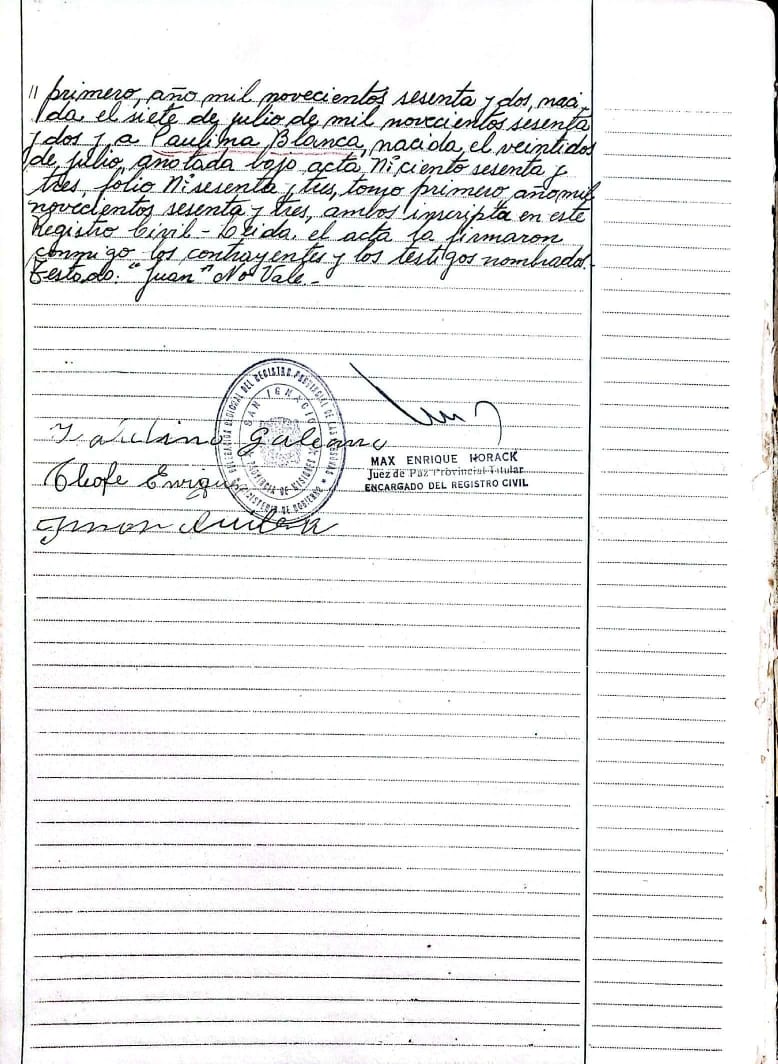 // primero, año mil novecientos sesenta y dos, naci-
da, el siete de julio de mil novecientos sesenta
y dos y a Paulina Blanca, nacida, el veintidos
de julio, anotada bajo acta, Nº ciento sesenta y
tres, folio Nº sesenta y tres, tomo primero, año mil
novecientos sesenta y tres, ambos inscripta en este
Registro Civil - Leida, el acta la firmaron
conmigo los contrayentes y los testigos nombrados.-
Testado: "Juan" No Vale.-
SAN IGNACIO
PROVINCIA DE MISIONES
Galeano
MAX ENRIQUE HORACK
Juez de Paz Provincial Titular
ENCARGADO DEL REGISTRO CIVIL
Cleofe